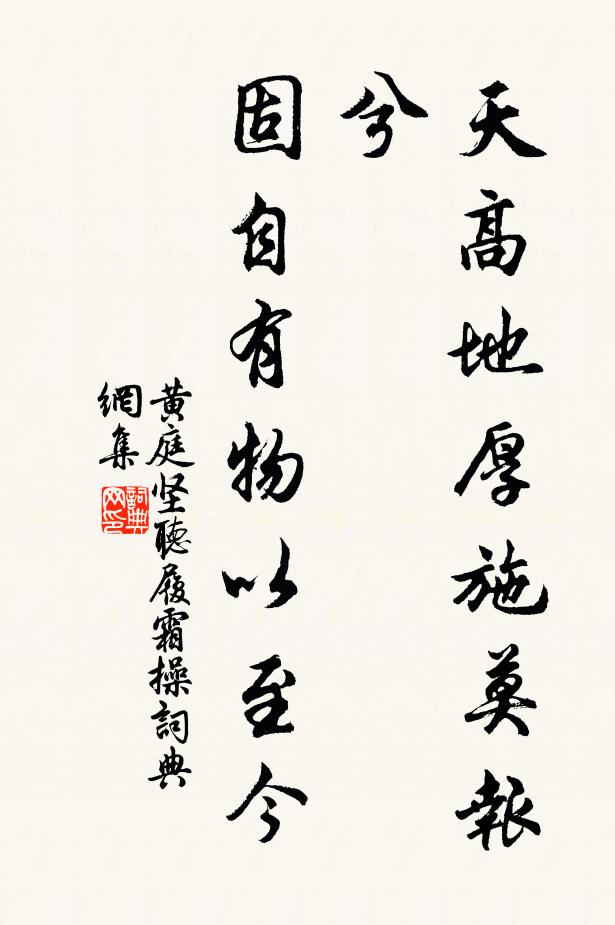 天高地厚施莫報
兮
固自有物以至今
黄庭坚聽履霜操詞典
網集
詞典
网印